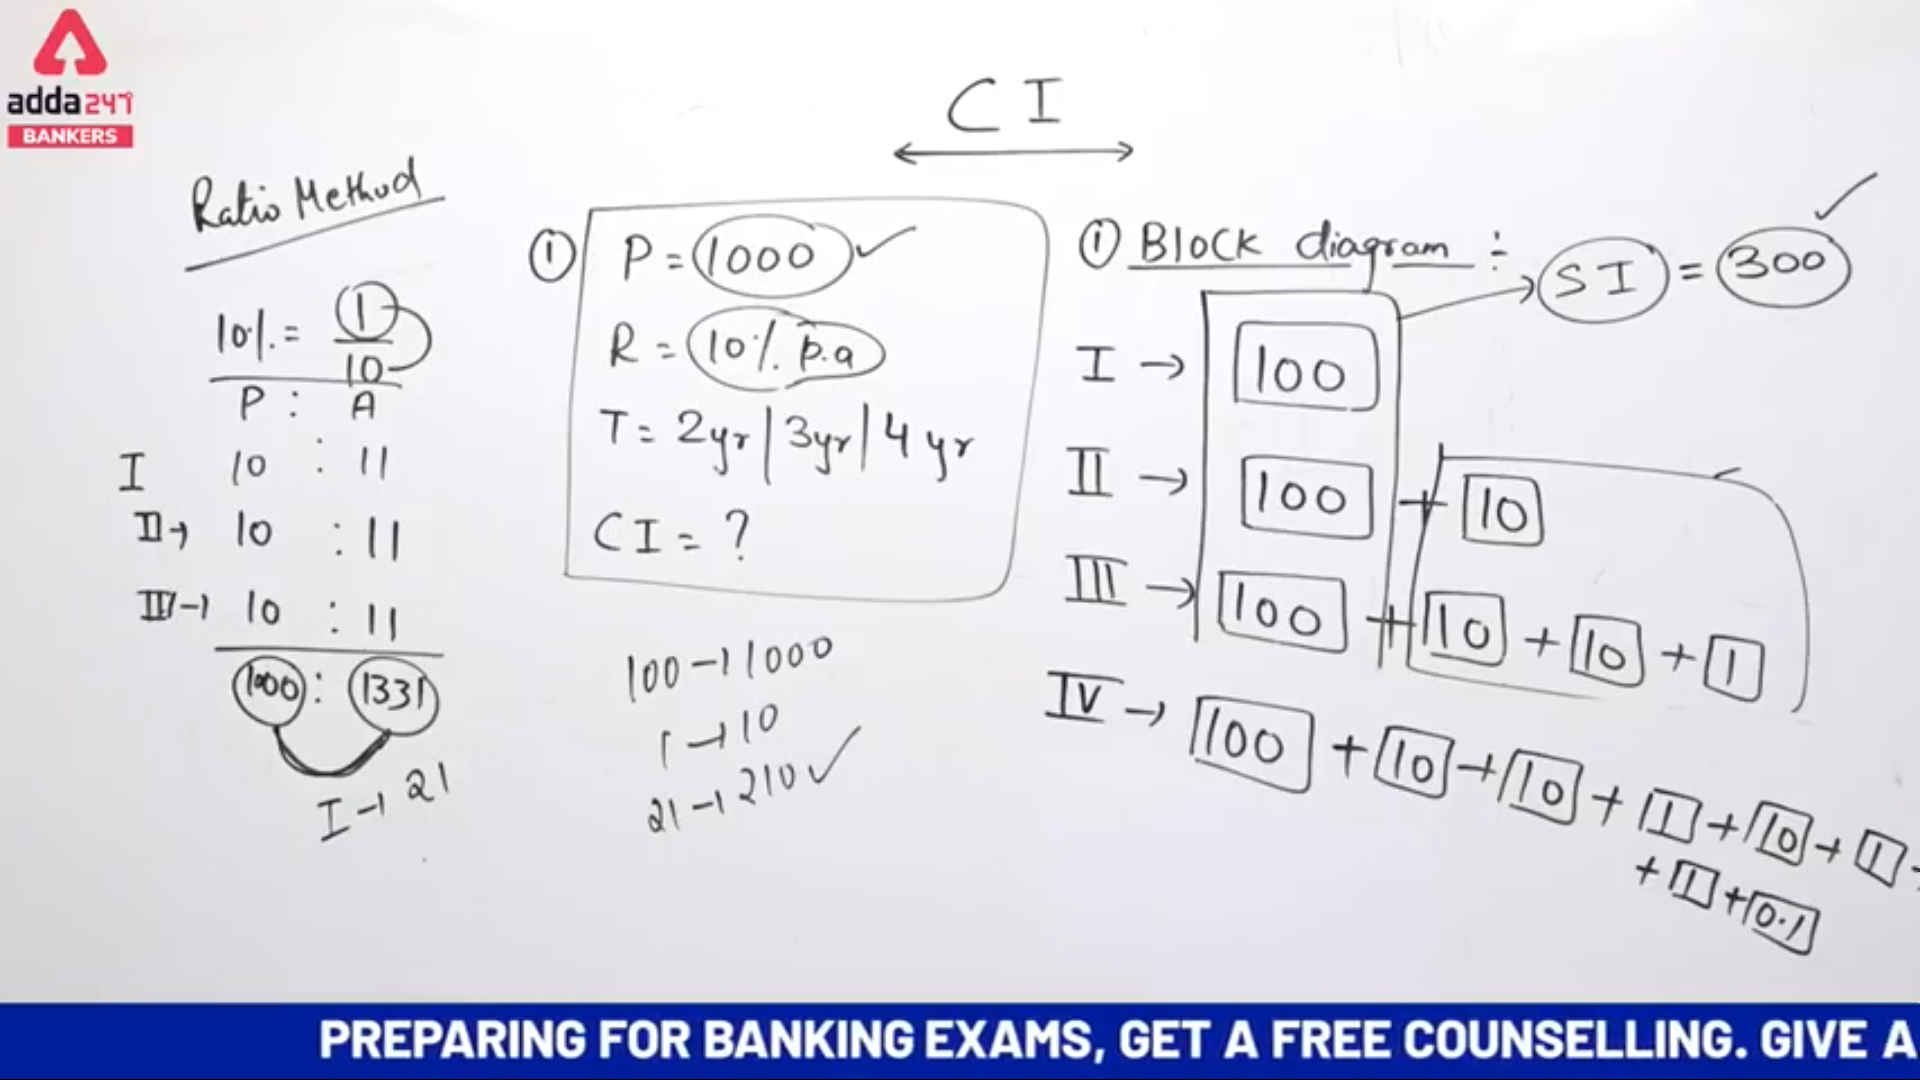 adda247
BANKERS
CI
Ratio Method
10% = 1/10
P : A
I 10 : 11
II→ 10 : 11
III→ 10 : 11
1000 : 1331
I → 21
① P = 1000 ✓
R = 10% p.a
T = 2yr | 3yr | 4yr
CI = ?
100 → 1000
1 → 10
21 → 210 ✓
① Block diagram :-
SI = 300 ✓
I → 100
II → 100 + 10
III → 100 + 10 + 10 + 1
IV → 100 + 10 + 10 + 1 + 10 + 1
+ 1 + 0.1
PREPARING FOR BANKING EXAMS, GET A FREE COUNSELLING. GIVE A